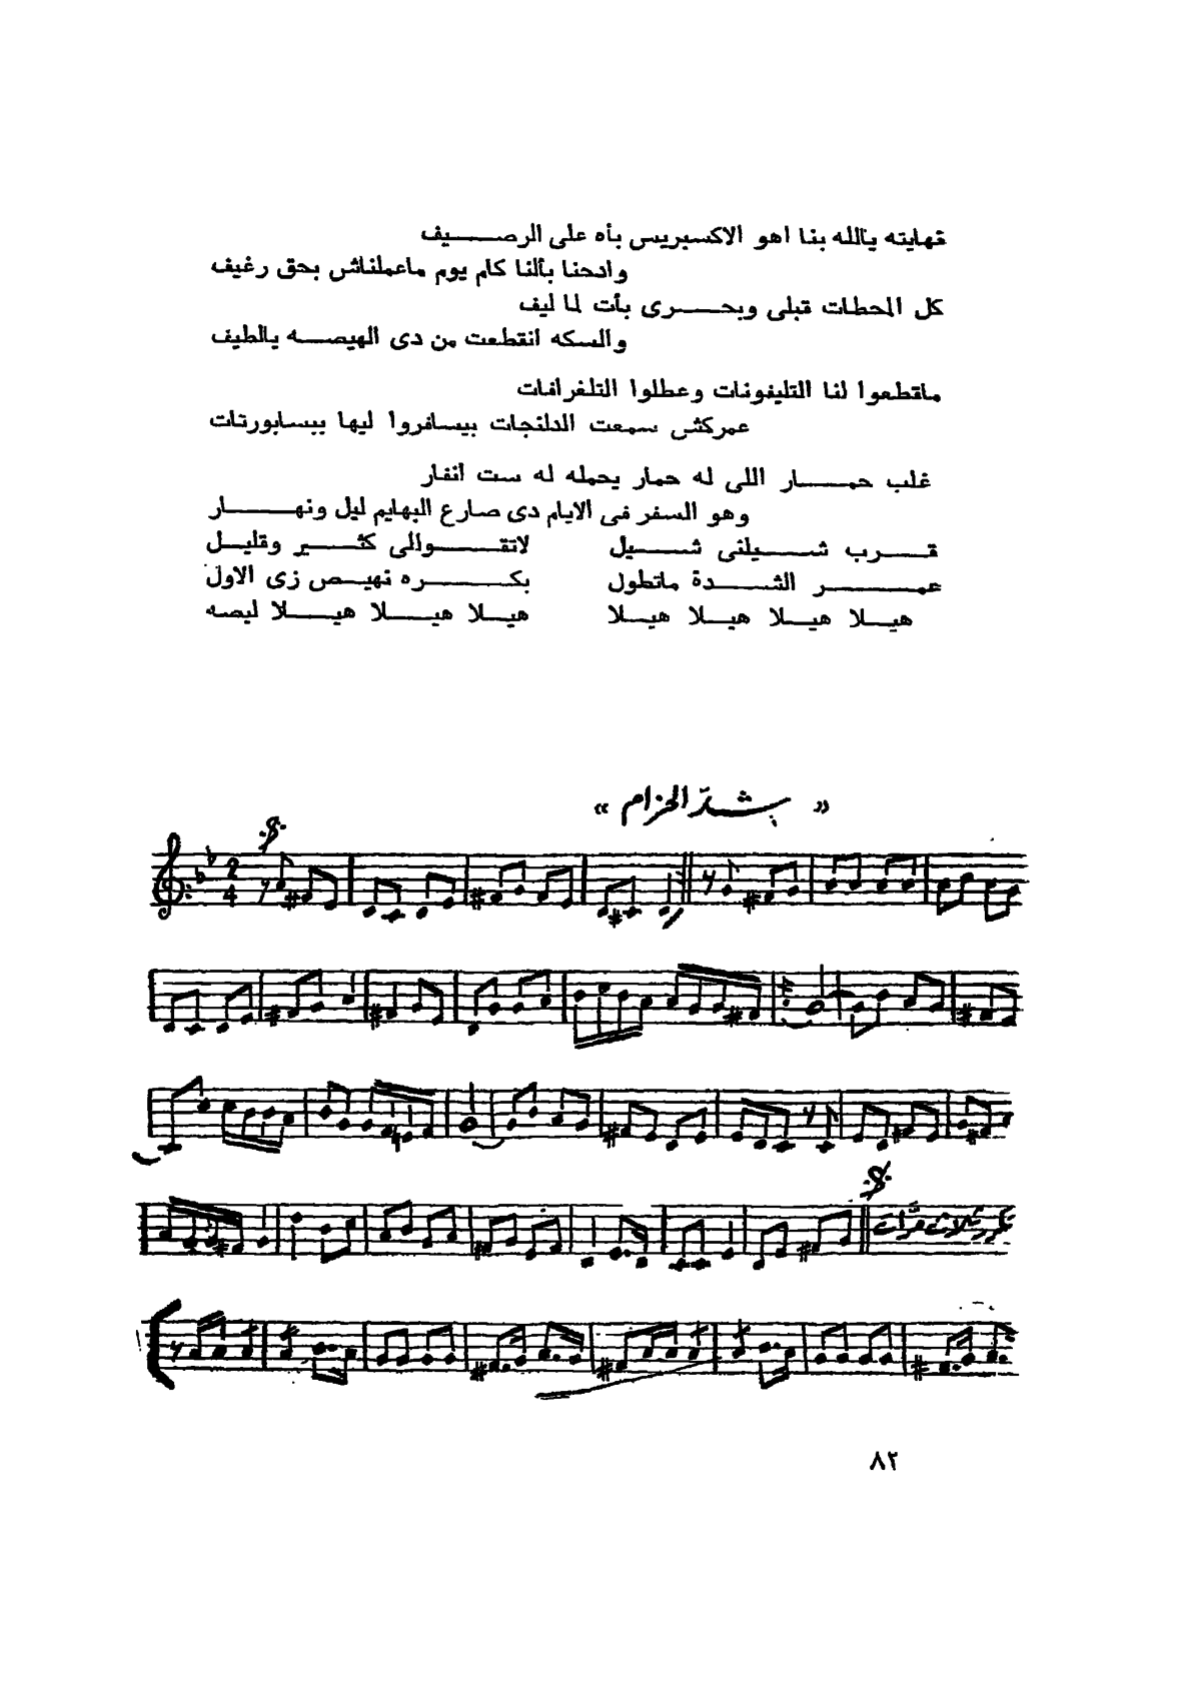 قهايته يالله بنا اهو الاكسبريس بأه على الرصـــيف
وادحنا بألنا كام يوم ماعملناش بحق رغيف
كل المحطات قبلى وبحـــرى بأت لما ليف
والسكه انقطعت من دى الهيصـــه يالطيف
ماقطعوا لنا التليفونات وعطلوا التلغرافات
عمركش سمعت الدلنجات بيسافروا ليها ببسابورتات
غلب حمـــار اللى له حمار يحمله له ست أنفار
وهو السفر فى الايام دى صارع البهايم ليل ونهـــار
قـــرب شـــيلنى شـــيل لاتقـــوالى كثـــير وقليـــل
عمـــر الشـــدة ماتطول بكـــره نهيـــص زى الاول
هيـــلا هيـــلا هيـــلا هيـــلا هيـــلا هيـــلا هيـــلا ليصه
« شدّ الحزام »
2
4
تكرر ثلاث مرّات
٨٢